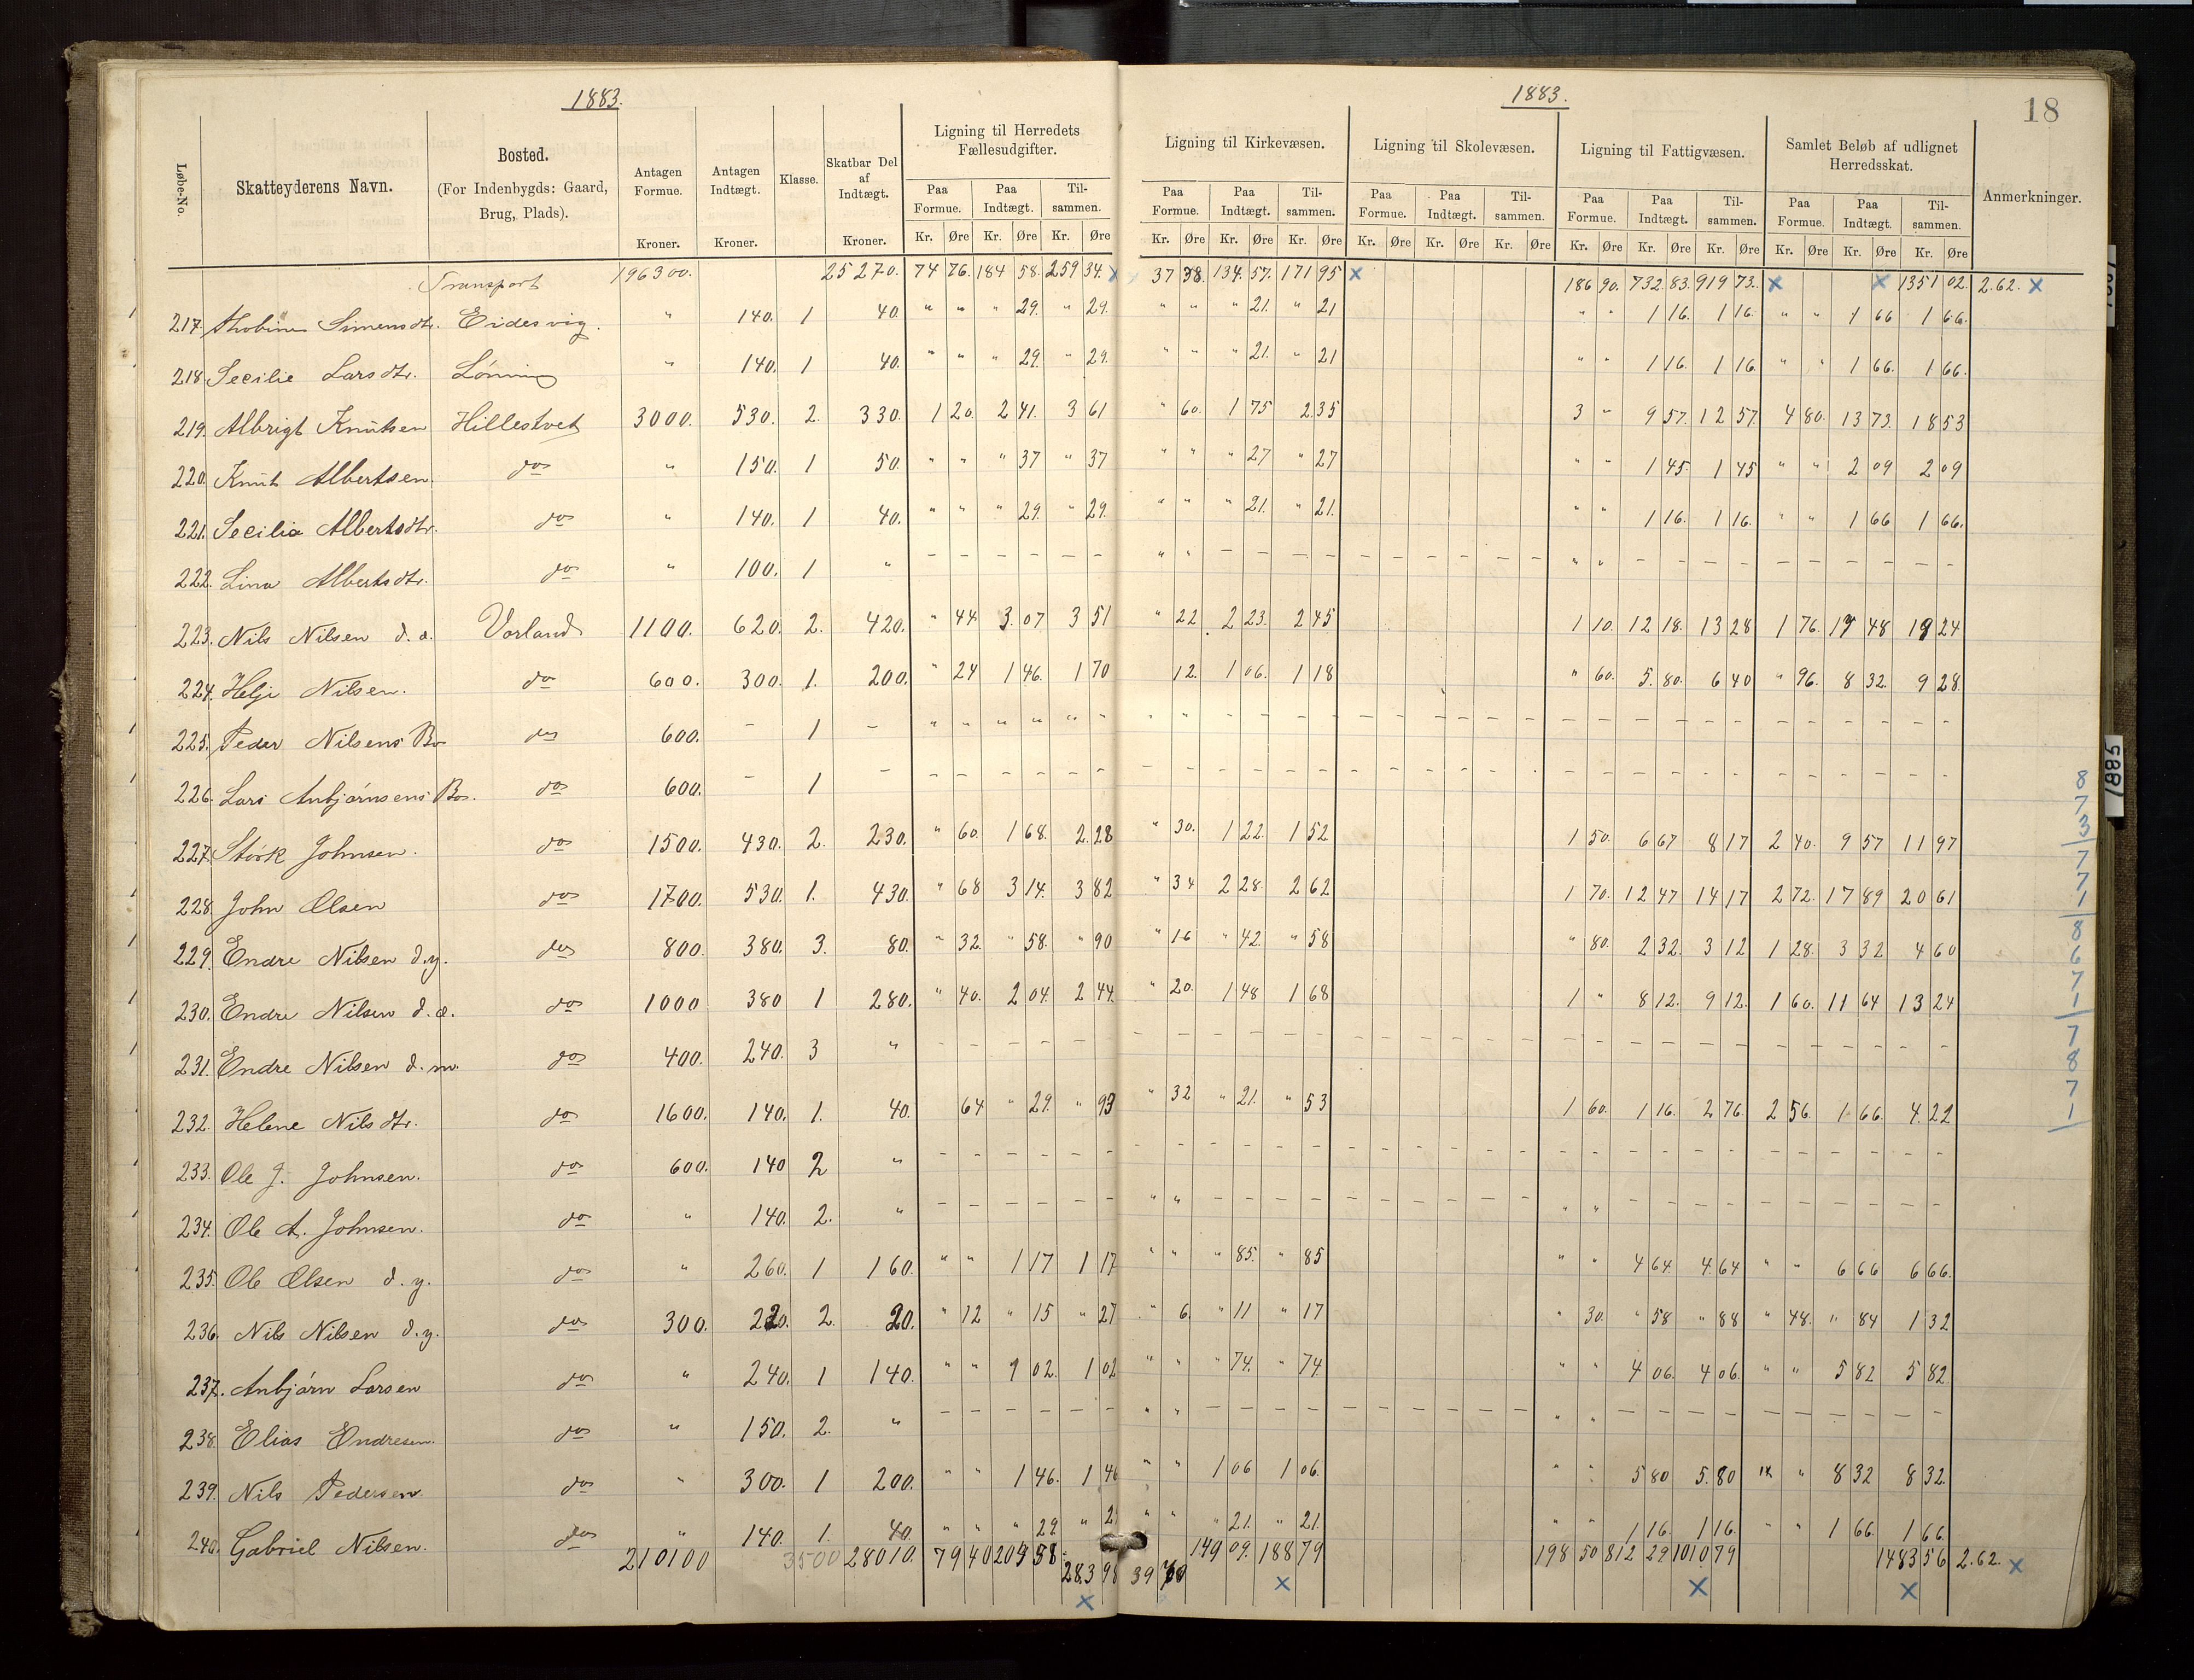 1883.
1883.
18
Løbe-No. Skatteyderens Navn. Bosted. (For Indenbygds: Gaard, Brug, Plads). Antagen Formue. Antagen Indtægt. Klasse. Skatbar Del af Indtægt. Ligning til Herredets Fællesudgifter. Ligning til Kirkevæsen. Ligning til Skolevæsen. Ligning til Fattigvæsen. Samlet Beløb af udlignet Herredsskat. Anmerkninger.
Paa Formue. Paa Indtægt. Tilsammen. Paa Formue. Paa Indtægt. Tilsammen. Paa Formue. Paa Indtægt. Tilsammen. Paa Formue. Paa Indtægt. Tilsammen. Paa Formue. Paa Indtægt. Tilsammen.
Kroner. Kroner. Kroner. Kr. Øre Kr. Øre Kr. Øre Kr. Øre Kr. Øre Kr. Øre Kr. Øre Kr. Øre Kr. Øre Kr. Øre Kr. Øre Kr. Øre Kr. Øre Kr. Øre Kr. Øre
Transport 196300. 25270. 74 76. 184 58. 259 34. x 37 38. 134. 57. 171 95 x 186 90. 732. 83. 919 73. x x 1351 02. 2.62. x
217. Simensdtr. Eidesvig. " 140. 1 40. " " " 29. " 29. " " " 21. " 21 " " 1 16. 1 16. " " 1 66 1 66.
218. Secilie Larsdtr. Lönning " 140. 1 40. " " " 29. " 29. " " " 21. " 21 " " 1 16. 1 16. " " 1 66. 1 66.
219. Albrigt Knutsen Hillestvet 3000. 530. 2. 330. 1 20. 2 41. 3 61 " 60. 1 75 2.35 3 " 9 57. 12 57. 4 80. 13 73. 18 53
220. Knut Albertsen. do 150. 1 50. " " " 37 " 37 " " " 27 " 27 " " 1 45. 1 45 " " 2 09 2 09
221. Secilia Albertsdtr. do " 140. 1 40. " " " 29. " 29. " " " 21. " 21. " " 1 16. 1 16. " " 1 66 1 66.
222. Lina Albertsdtr. do " 100. 1 " – – – – – – " " – – – – – – – – – – " " – – – – – – – – – –
223. Nils Nilsen d. æ. Vorland 1100. 620. 2. 420. " 44 3. 07 3 51 " 22 2 23. 2 45 1 10. 12 18. 13 28 1 76. 17 48 19 24
224. Helje Nilsen. do 600. 300. 1. 200. " 24 1 46. 1 70 12. 1 06. 1 18 " 60. 5. 80. 6 40 " 96. 8 32. 9 28.
225. Peder Nilsens Bo do 600. – 1 – " " " " " – " " – – – – – – – – – – – – – – – – – – – – – –
226. Lars Anbjörnsens Bo. do 600. – 1 – – – – – – – – – – – – – – – – – – – – – – – – – – – – – – –
227. Störk Johnsen. do 1500. 430. 2. 230. " 60. 1 68. 2.28 " 30. 1 22. 1 52 1 50. 6 67 8 17 2 40. 9 57 11 97
228. John Olsen do 1700. 530. 1. 430. " 68 3 14. 3 82 " 34 2 28. 2 62 1 70. 12 47 14 17 2 72. 17 89 20 61
229. Endre Nilsen d.y. do 800. 380. 3. 80. " 32. " 58. " 90 " 16 " 42. " 58 " 80. 2 32. 3 12 1 28. 3 32 4 60
230. Endre Nilsen d. æ. do 1000 380 1 280. " 40. 2 04. 2 44. " 20. 1 48 1 68 1 " 8 12. 9 12. 1 60. 11 64 13 24
231. Endre Nilsen d. m. do 400. 240. 3 " – – – – – – – – – – – – – – – – – – – – – – – – – – – – – –
232. Helene Nilsdtr. do 1600. 140. 1. 40. 64 " 29. " 93 " 32 " 21. " 53 1 60. 1 16. 2 76. 2 56. 1 66. 4.22
233. Ole J. Johnsen. do 600. 140 2 " – – – – – – – – – – – – – – – – – – – – – – – – – – – – – –
234. Ole A. Johnsen. do " 140. 2. " – – – – – – " " – – – – – – – – – – " " – – – – – – – – – –
235. Ole Olsen d. y. do " 260. 1 160. " " 1 17 1 17 " " " 85. " 85 " " 4 64 4.64 " " 6 66 6 66.
236. Nils Nilsen d.y. do 300. 220. 2. 20. " 12 " 15 " 27 " 6 " 11 " 17 " 30. " 58 " 88 " 48. " 84 1 32
237. Anbjörn Larsen do " 240. 1 140. " " 1 02. 1 02 " " " 74. " 74. " " 4 06. 4 06. " " 5 82 5 82
238. Elias Endresen. do " 150. 2. " – – – – – – " " – – – – – – – – – – " " – – – – – – – – – –
239. Nils Pedersen do " 300. 1 200. " " 1 46. 1 46 " " 1 06 1 06. " " 5 80 5. 80 " 8 32 8 32.
240. Gabriel Nilsen. do " 140. 1. 40. " " " 29. " 2 " " " 21. " 21. " " 1 16. 1 16. " " 1 66. 1 66.
210100 3500 28010. 79 40 283 98 39 149 09. 188 79 198 50 812 29 1010 79 1483 56 2.62. x
x x x x
8
7
3
7
7
1
8
6
7
1
7
8
7
1
1885